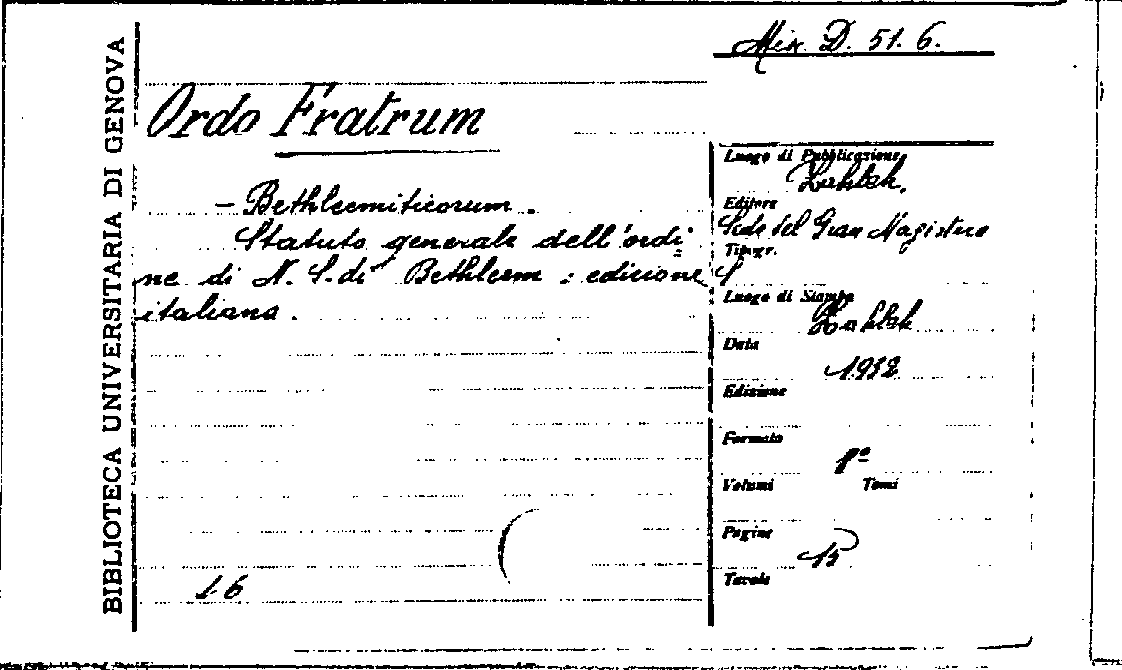 BIBLIOTECA UNIVERSITARIA DI GENOVA
Mix. D. 51. 6.
Ordo Fratrum
- Bethleemiticorum.
Statuto generale dell'ordi=
ne di N. S. di Bethleem : edizione
italiana.
16
Luogo di Pubblicazione
Zahleh.
Editore
Sede del Gran Magistero
Tipogr.
Luogo di Stampa
Zahleh
Data
1932
Edizione
Formato
8°
Volumi Tomi
Pagine
15
Tavole